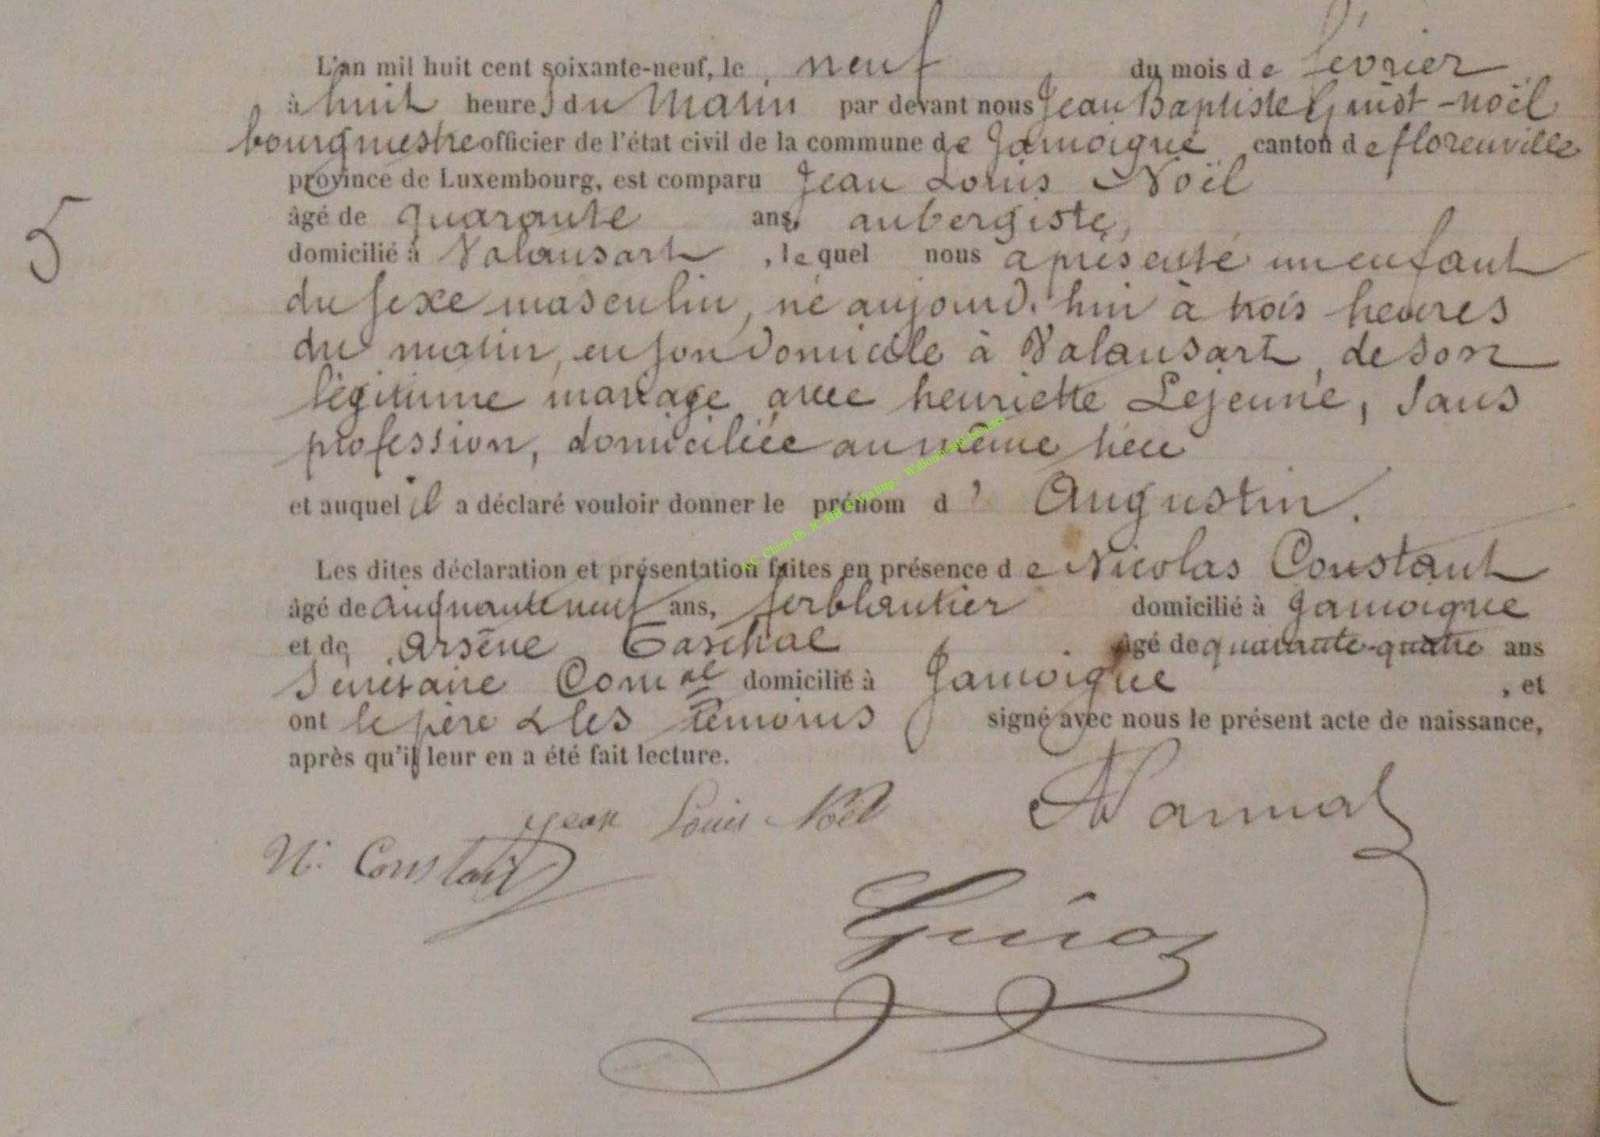 L'an mil huit cent soixante-neuf, le neuf du mois de février
à huit heures du matin par devant nous Jean Baptiste Guiot-Noël
bourgmestre officier de l'état civil de la commune de Jamoigne canton de florenville
province de Luxembourg, est comparu Jean Louis Noël
âgé de quarante ans, aubergiste,
domicilié à Valansart, lequel nous a présenté un enfant
du sexe masculin, né aujourd'hui à trois heures
du matin, en son domicile à Valansart, de son
légitime mariage avec henriette Lejeune, sans
profession, domiciliée au même lieu
et auquel il a déclaré vouloir donner le prénom d'Augustin.
Les dites déclaration et présentation faites en présence de Nicolas Constant
âgé de cinquante neuf ans, ferblantier domicilié à Jamoigne
et de Arsène âgé de quarante-quatre ans
Secrétaire Com.al domicilié à Jamoigne, et
ont le père & les témoins signé avec nous le présent acte de naissance,
après qu'il leur en a été fait lecture.
5
jean Louis Noël
N. Constant
Guiot